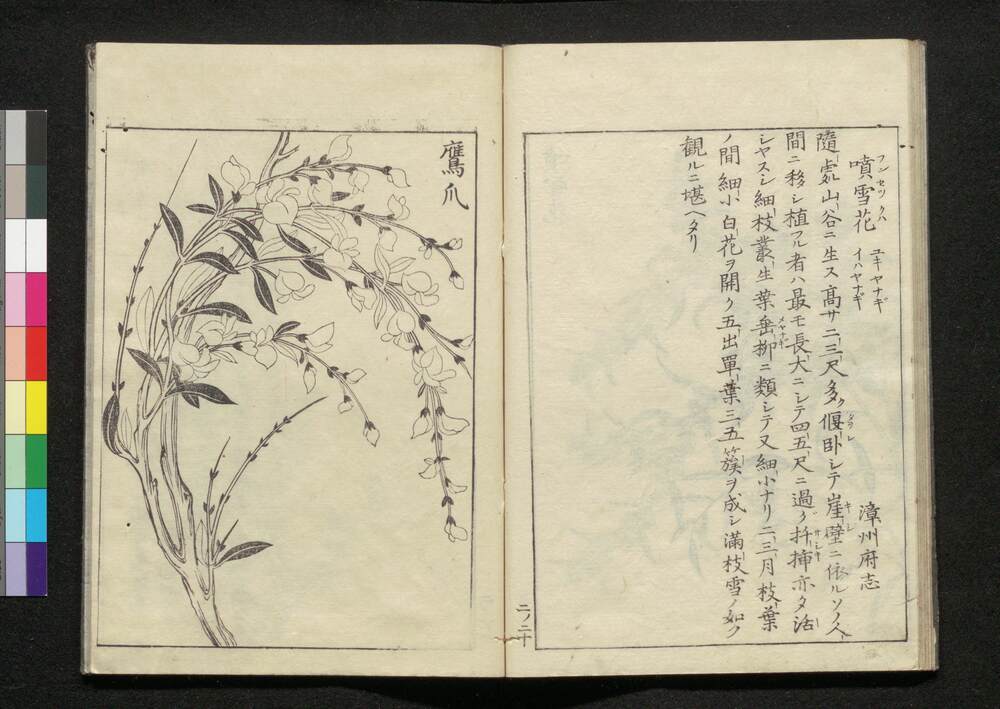 噴雪花 フンセツクハ ユキヤナギ イハヤナギ 漳州府志
隨處山谷ニ生ス高サ二三尺多ク偃臥シテ崖壁ニ依ルソノ人
間ニ移シ植フル者ハ最モ長大ニシテ四五尺ニ過ク扦揷亦タ活
シヤスシ細枝叢生葉垂柳ニ類シテ又細小ナリ二三月枝葉
ノ間細小白花ヲ開ク五出單葉三五簇ヲ成シ滿枝雪ノ如ク
観ルニ堪ヘタリ
二ノ二十
鷹爪